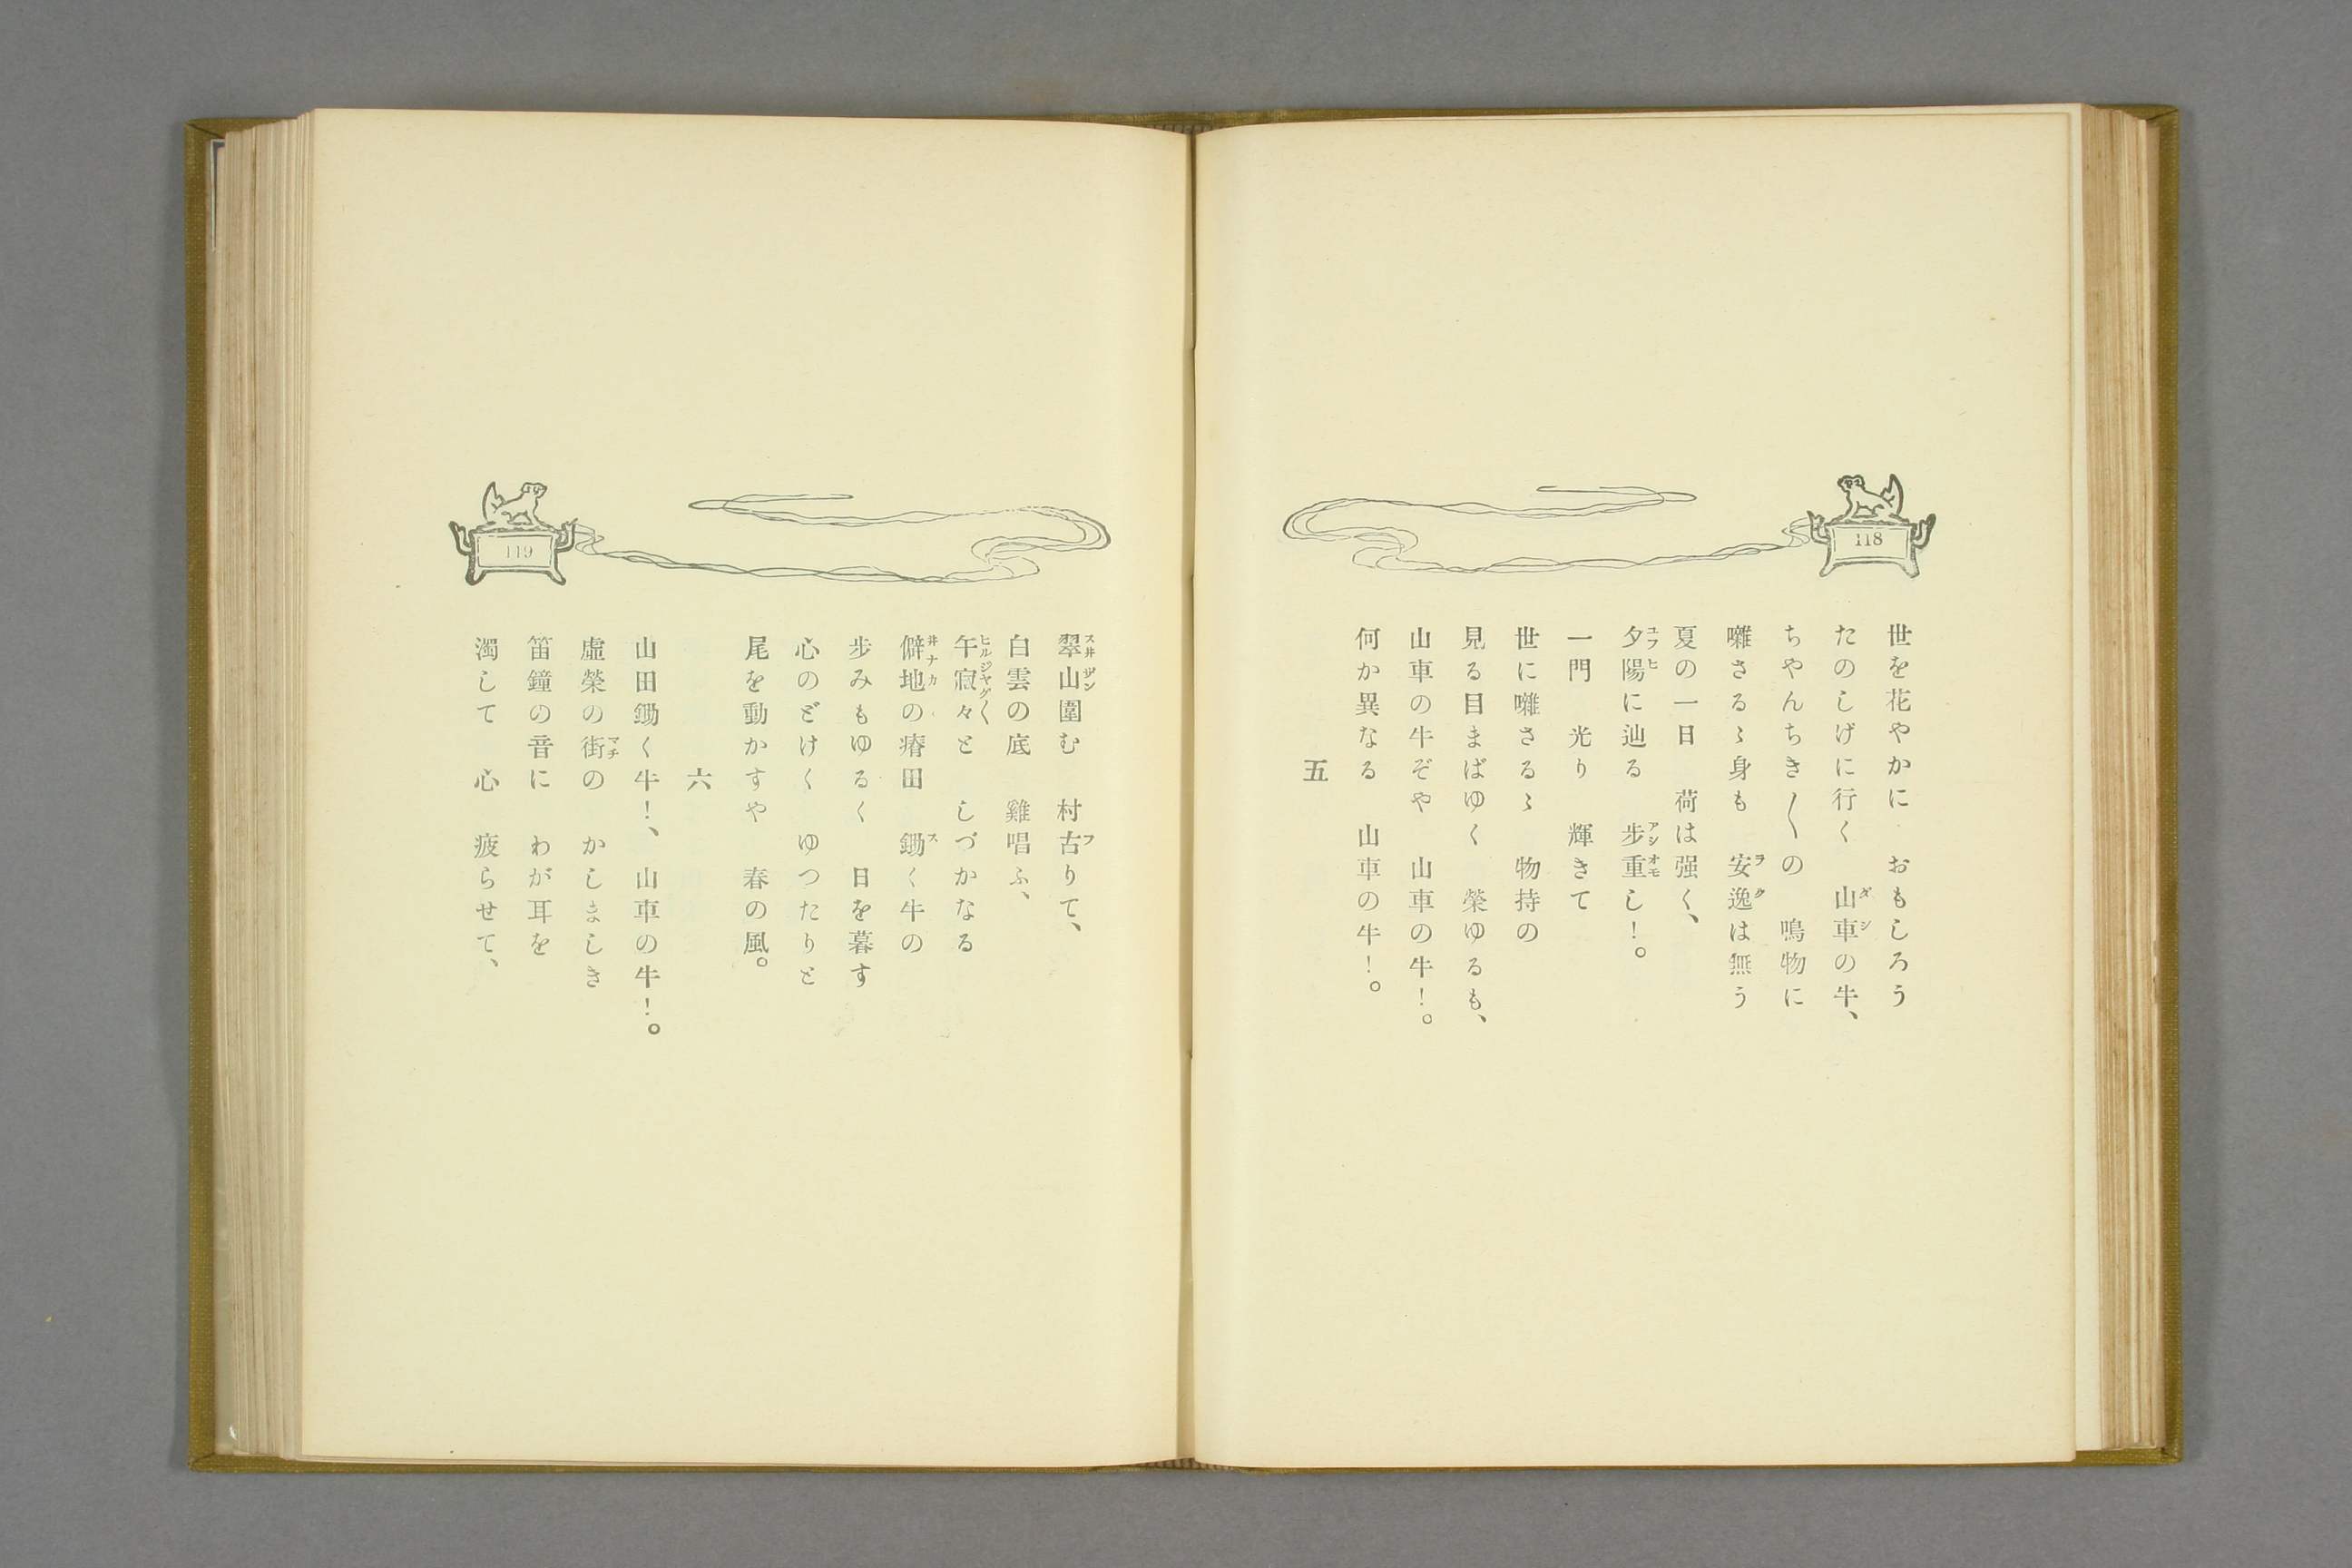 118
世を花やかに　おもしろう
たのしげに行く　山車の牛、
ちやんちき〱の　鳴物に
囃さるゝ身も　安逸は無う
夏の一日　荷は强く、
夕陽に辿る　步重し！。
一門　光り　輝きて
世に囃さるゝ　物持の
見る目まばゆく　榮ゆるも、
山車の牛ぞや　山車の牛！。
何か異なる　山車の牛！。
五
119
翠山圍む　村古りて、
白雲の底　雞唱ふ、
午寂々と　しづかなる
僻地の瘠田　鋤く牛の
步みもゆるく　日を暮す
心のどけく　ゆつたりと
尾を動かすや　春の風。
六
山田鋤く牛！、　山車の牛！。
虛榮の街の　かしましき
笛鐘の音に　わが耳を
濁して　心　疲らせて、